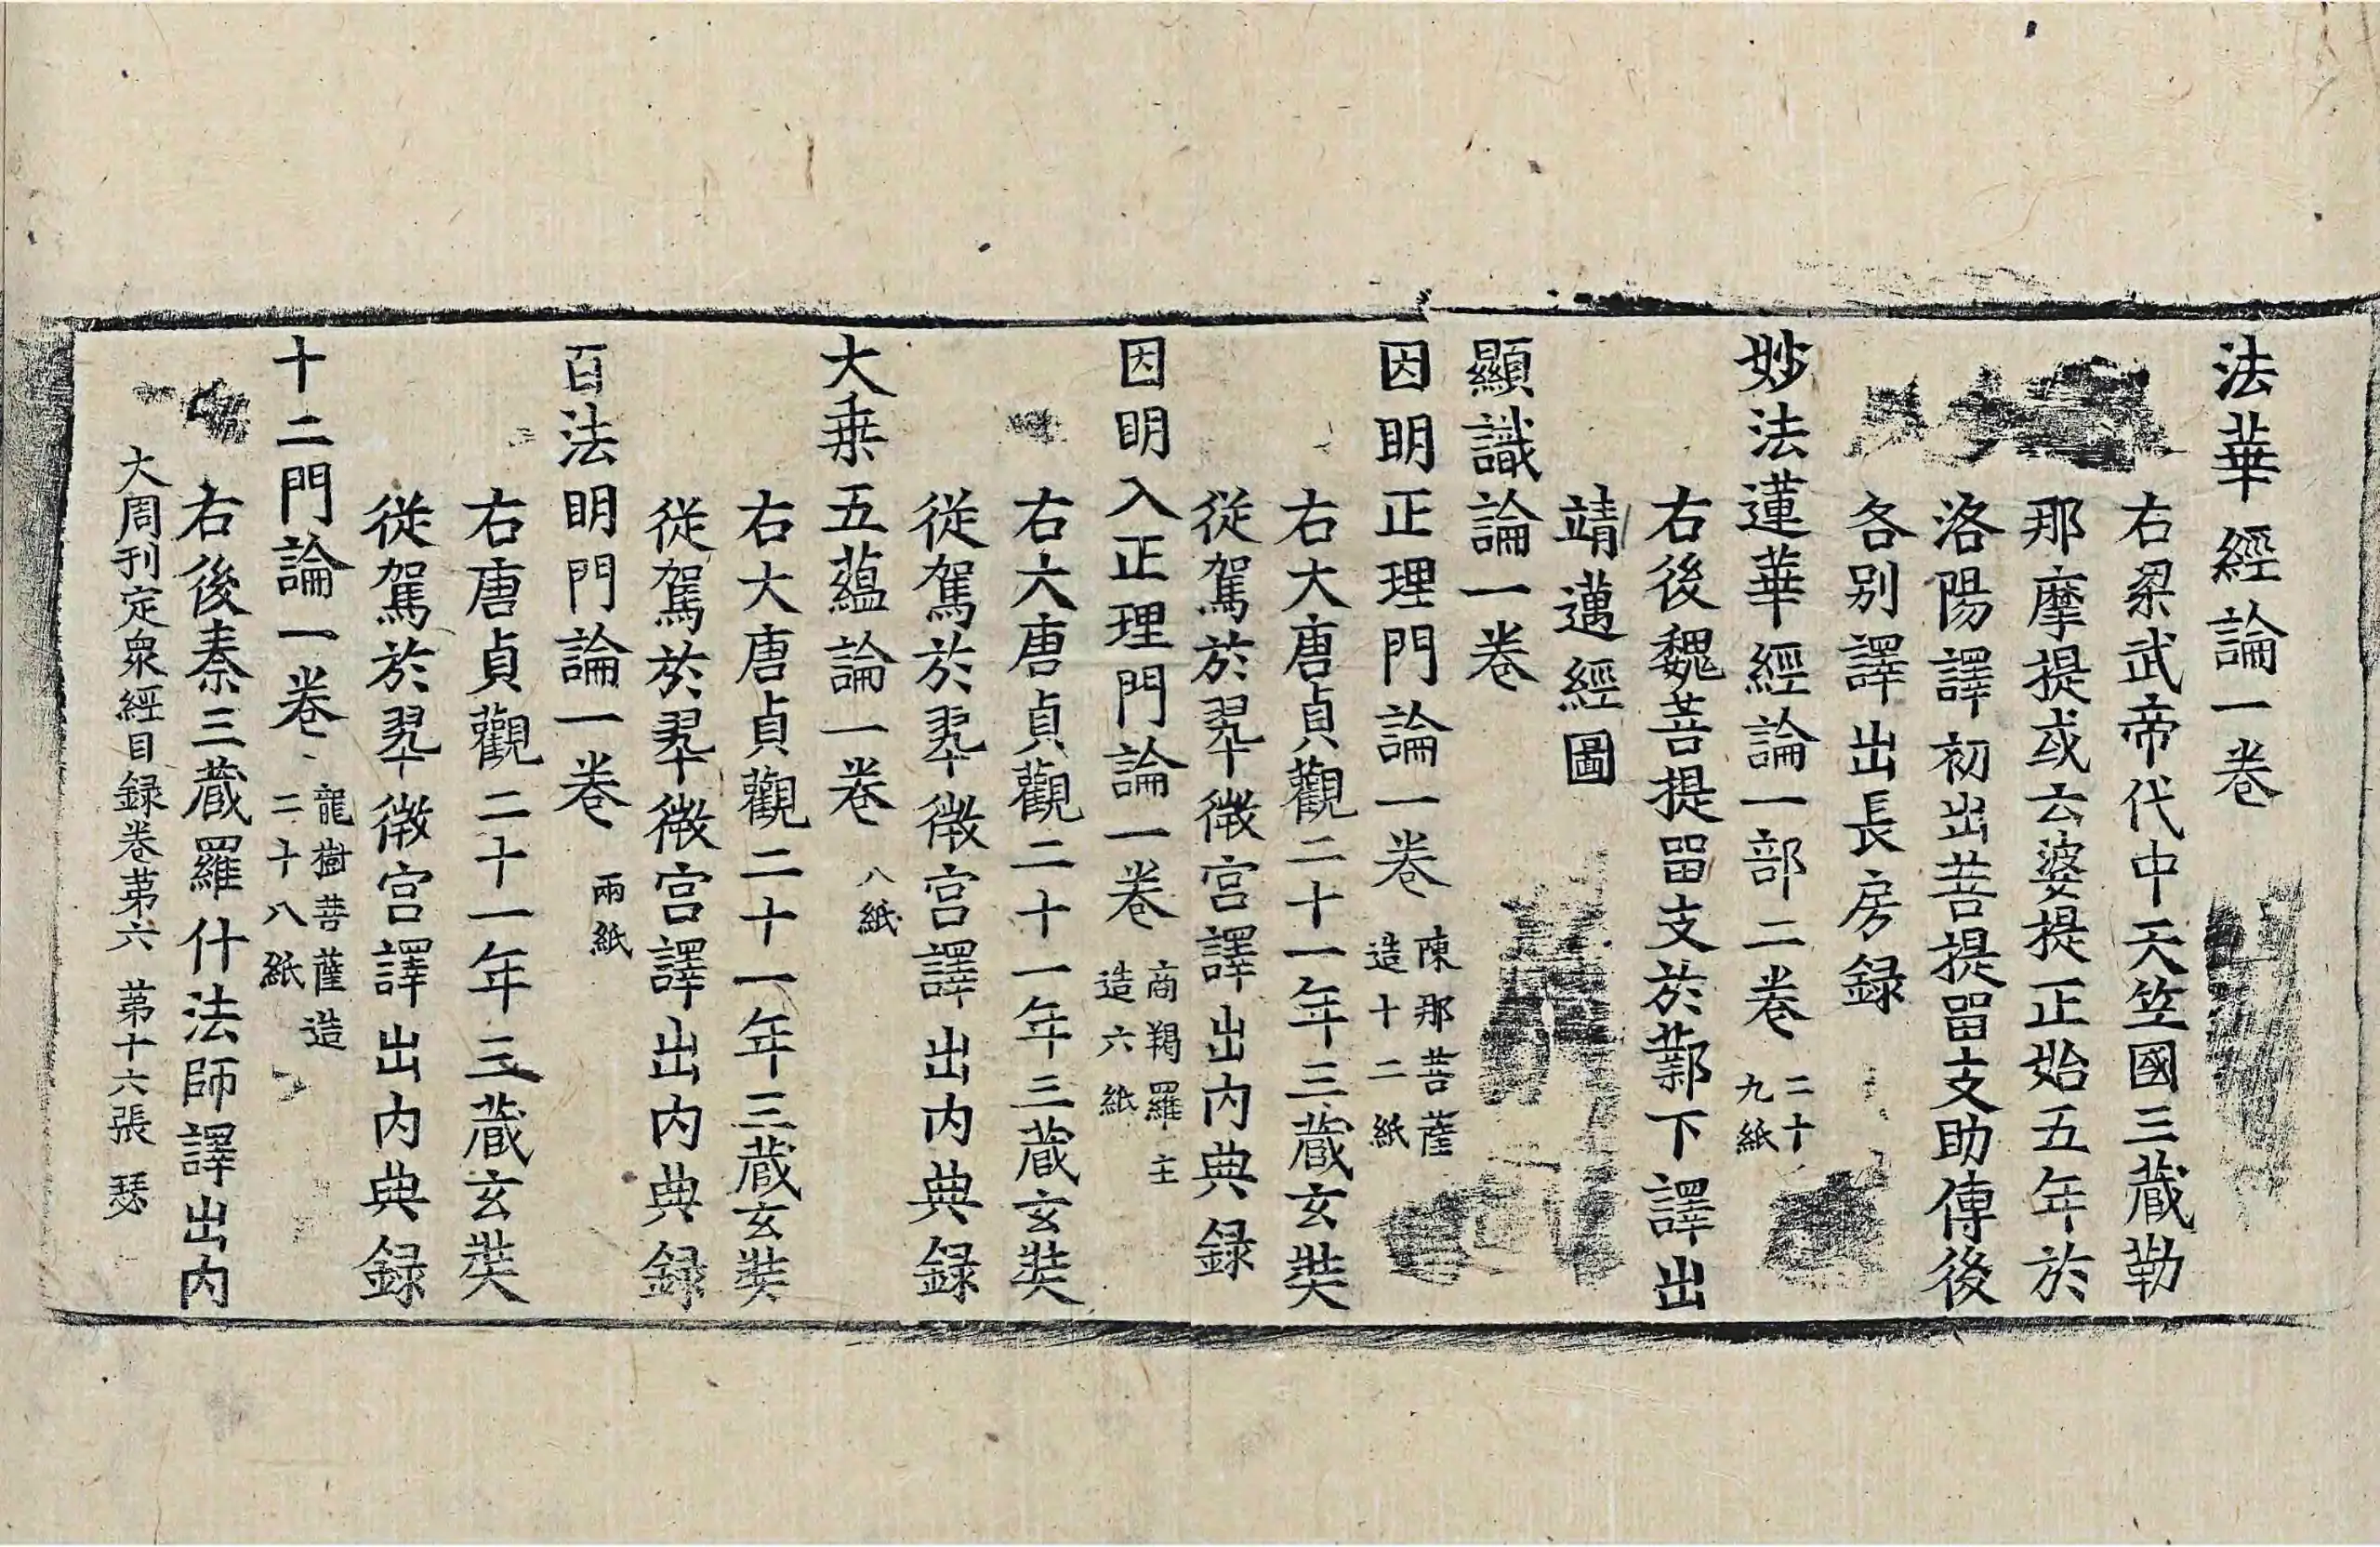 法華經論一卷
右梁武帝代中天笠國三蔵勒
那摩提或云婆提正始五年於
洛陽譯初出菩提留支助傳後
各别譯出長房録
妙法蓮華經論一部二卷 二十
九紙
右後魏菩提留支於鄴下譯出
靖邁經圖
顯識論一卷
因明正理門論一卷 陳那菩薩
造十二紙
右大唐貞觀二十一年三蔵玄奘
從駕於翠微宫譯出内典録
因明入正理門論一卷 商羯羅主
造六紙
右大唐貞觀二十一年三蔵玄奘
從駕於翠微宫譯出内典録
大乗五蘊論一卷 八紙
右大唐貞觀二十一年三蔵玄奘
從駕於翠微宫譯出内典録
百法明門論一卷 兩紙
右唐貞觀二十一年三蔵玄奘
從駕於翠微宫譯出内典録
十二門論一卷 龍樹菩薩造
二十八紙
右後秦三蔵羅什法師譯出内
大周刊定衆經目録卷苐六 苐十六張 瑟